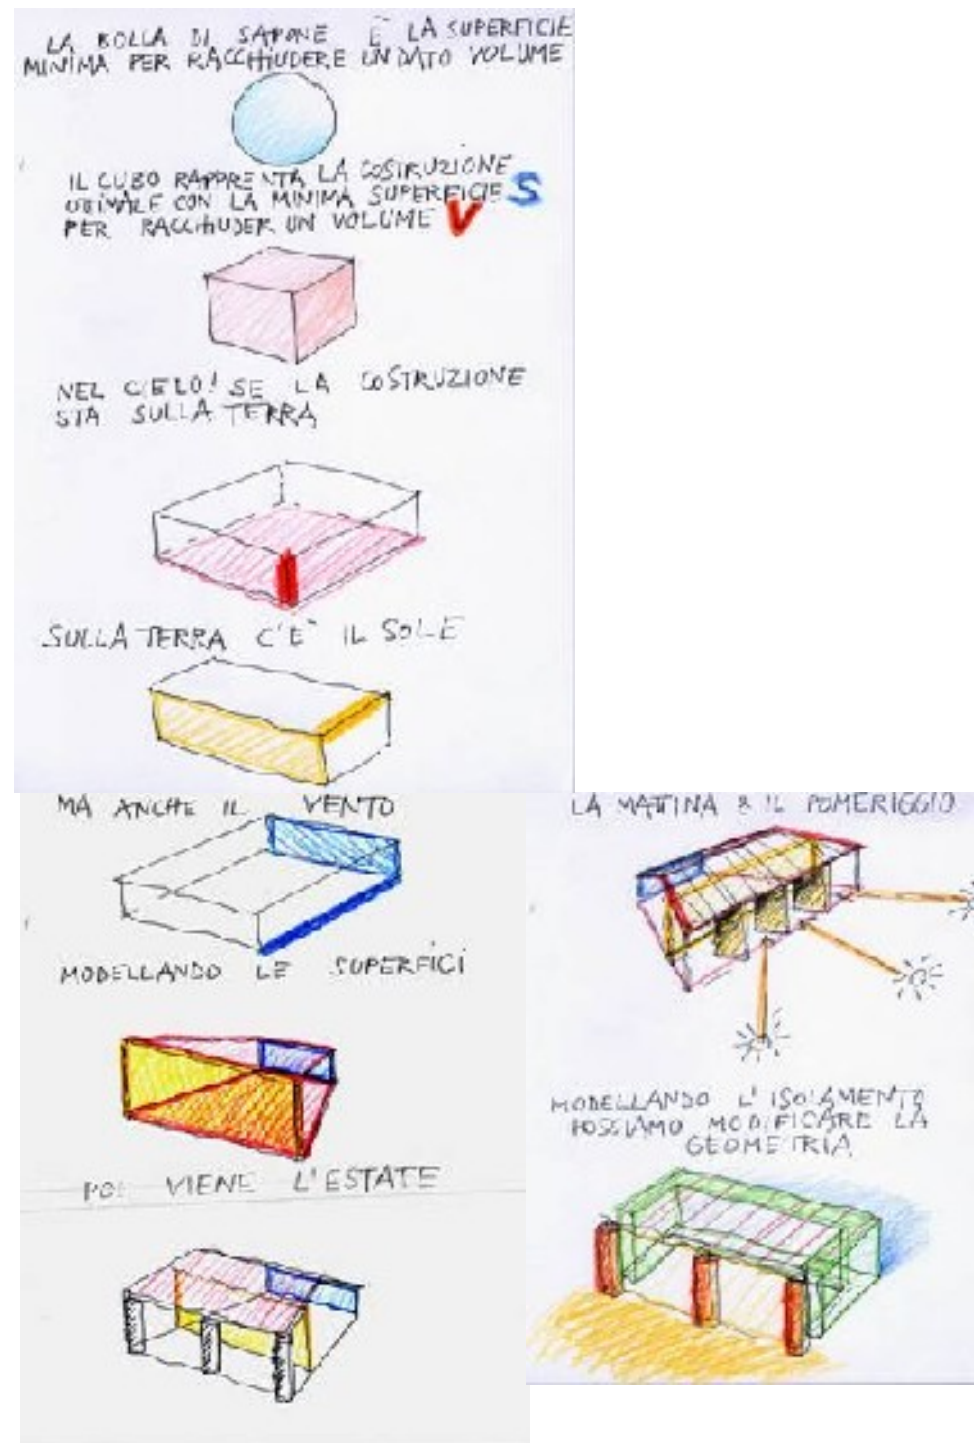 LA BOLLA DI SAPONE È LA SUPERFICIE
MINIMA PER RACCHIUDERE UN DATO VOLUME
IL CUBO RAPPRE NTA LA COSTRUZIONE
CON LA MINIMA SUPERFICIE S
PER RACCHIUDER UN VOLUME V
NEL CIELO! SE LA COSTRUZIONE
STA SULLA TERRA
SULLA TERRA C'E' IL SOLE
MA ANCHE IL VENTO
MODELLANDO LE SUPERFICI
POI VIENE L'ESTATE
LA MATTINA & IL POMERIGGIO
MODELLANDO L'ISOLAMENTO
POSSIAMO MODIFICARE LA
GEOMETRIA